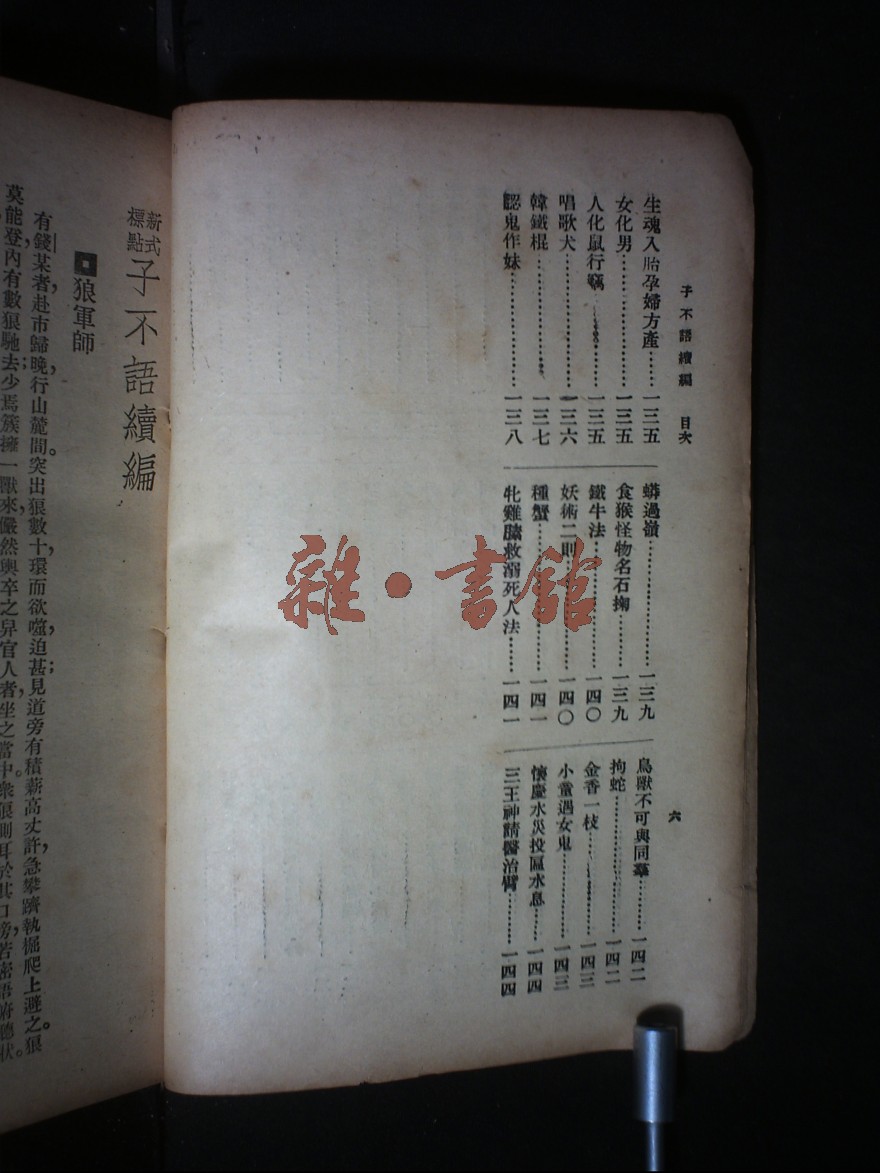 子不語續編 目次
六
生魂入胎孕婦方產……一三五
女化男……一三五
人化鼠行竊……一三五
唱歌犬……一三六
韓鐵棍……一三七
認鬼作妹……一三八
蟒過嶺……一三九
食猴怪物名石掬……一三九
鐵牛法……一四〇
妖術二則……一四〇
種蟹……一四一
牝雞臟救溺死人法……一四一
鳥獸不可與同羣……一四二
拘蛇……一四二
金香一枝……一四三
小童遇女鬼……一四三
懷慶水災投匾水息……一四四
三王神請醫治臂……一四四
雜·書館
新式標點 子不語續編
狼軍師
有錢某者,赴市歸晚,行山麓間。突出狼數十,環而欲噬;迫甚,見道旁有積薪高丈許,急攀躋執掘爬上避之。狼
莫能登,內有數狼馳去;少焉,簇擁一獸來,儼然輿卒之舁官人者,坐之當中。衆狼則耳於其口傍,若密語俯聽狀。